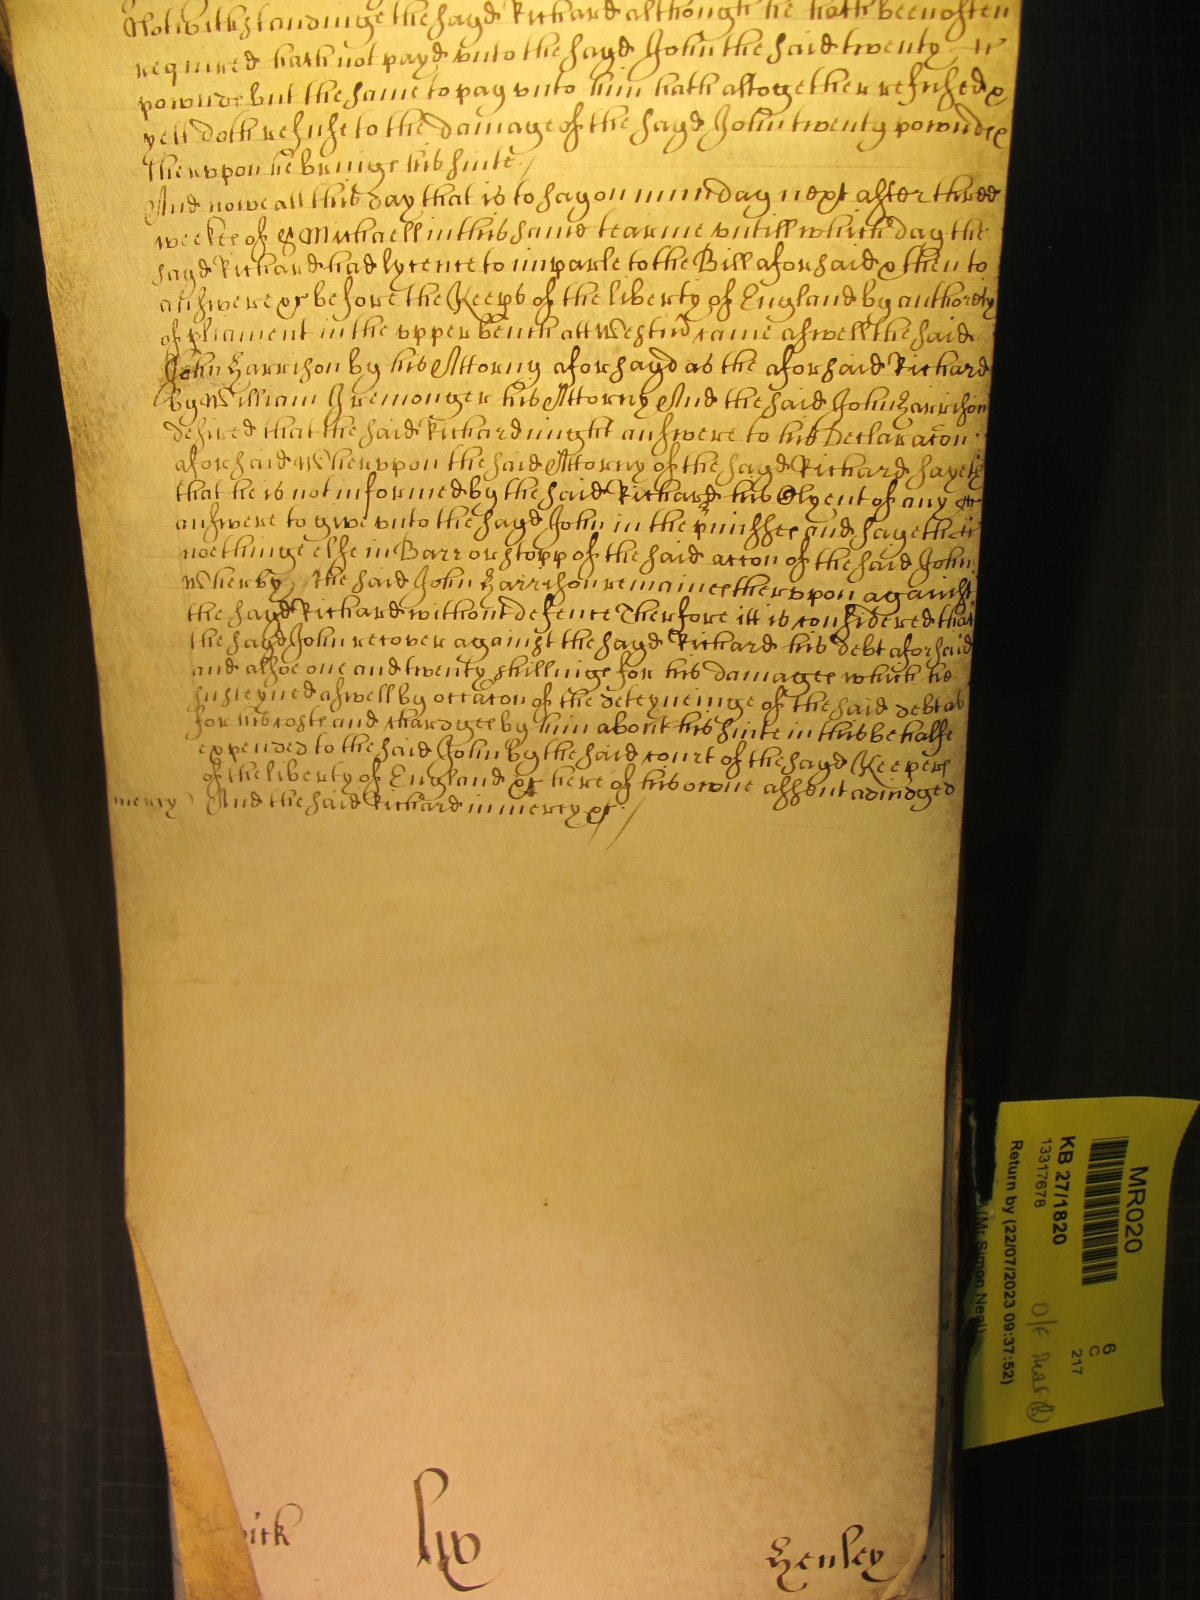 Notwithstandinge the sayd Richard although he hath been often
required hath not payd unto the sayd John the said twenty
pownds but the same to pay unto him hath altogether refused &
yett doth refuse to the damage of the sayd John twenty pownds
therupon he brings his suite
And nowe att this day that is to say on munday next after three
weekes of St Michaell in this same tearme untill which day the
sayd Richard had lycence to imparle to the Bill aforsaid & then to
answere &c before the Keeps of the liberty of England by authority
of pliament in the upper bench att Westm̄ came aswell the said
John Harrison by his Attorny aforsayd as the aforsaid Richard
by William Iremonger his Attorny And the said John Harrison
desired that the said Richard might answere to his Declaracōn
aforsaid Wherupon the said Attorny of the sayd Richard sayeth
that he is not informed by the said Richard his Clyent of any
answere to give unto the sayd John in the p̄misses and sayeth
noethinge else in Barr or stopp of the said accōn of the said John
Wherby the said John Harrison remaines therupon against
the sayd Richard without defence Therfore itt is considered that
the sayd John recover against the sayd Richard his debt aforsaid
and alsoe one and twenty shillings for his damages which he
susteyned aswell by occacōn of the deteyneinge of the said debt as
for his costs and chardges by him about his suite in this behalfe
expended to the said John by the said court of the sayd Keepers
of the liberty of England &c here of his owne assent adiudged
mercy And the said Richard in mercy &c
wick lix Henley
MR020
KB 27/1820
13317678
Return by (22/07/2023 09:37:52)
(Mr Simon Neal)
6
C
217